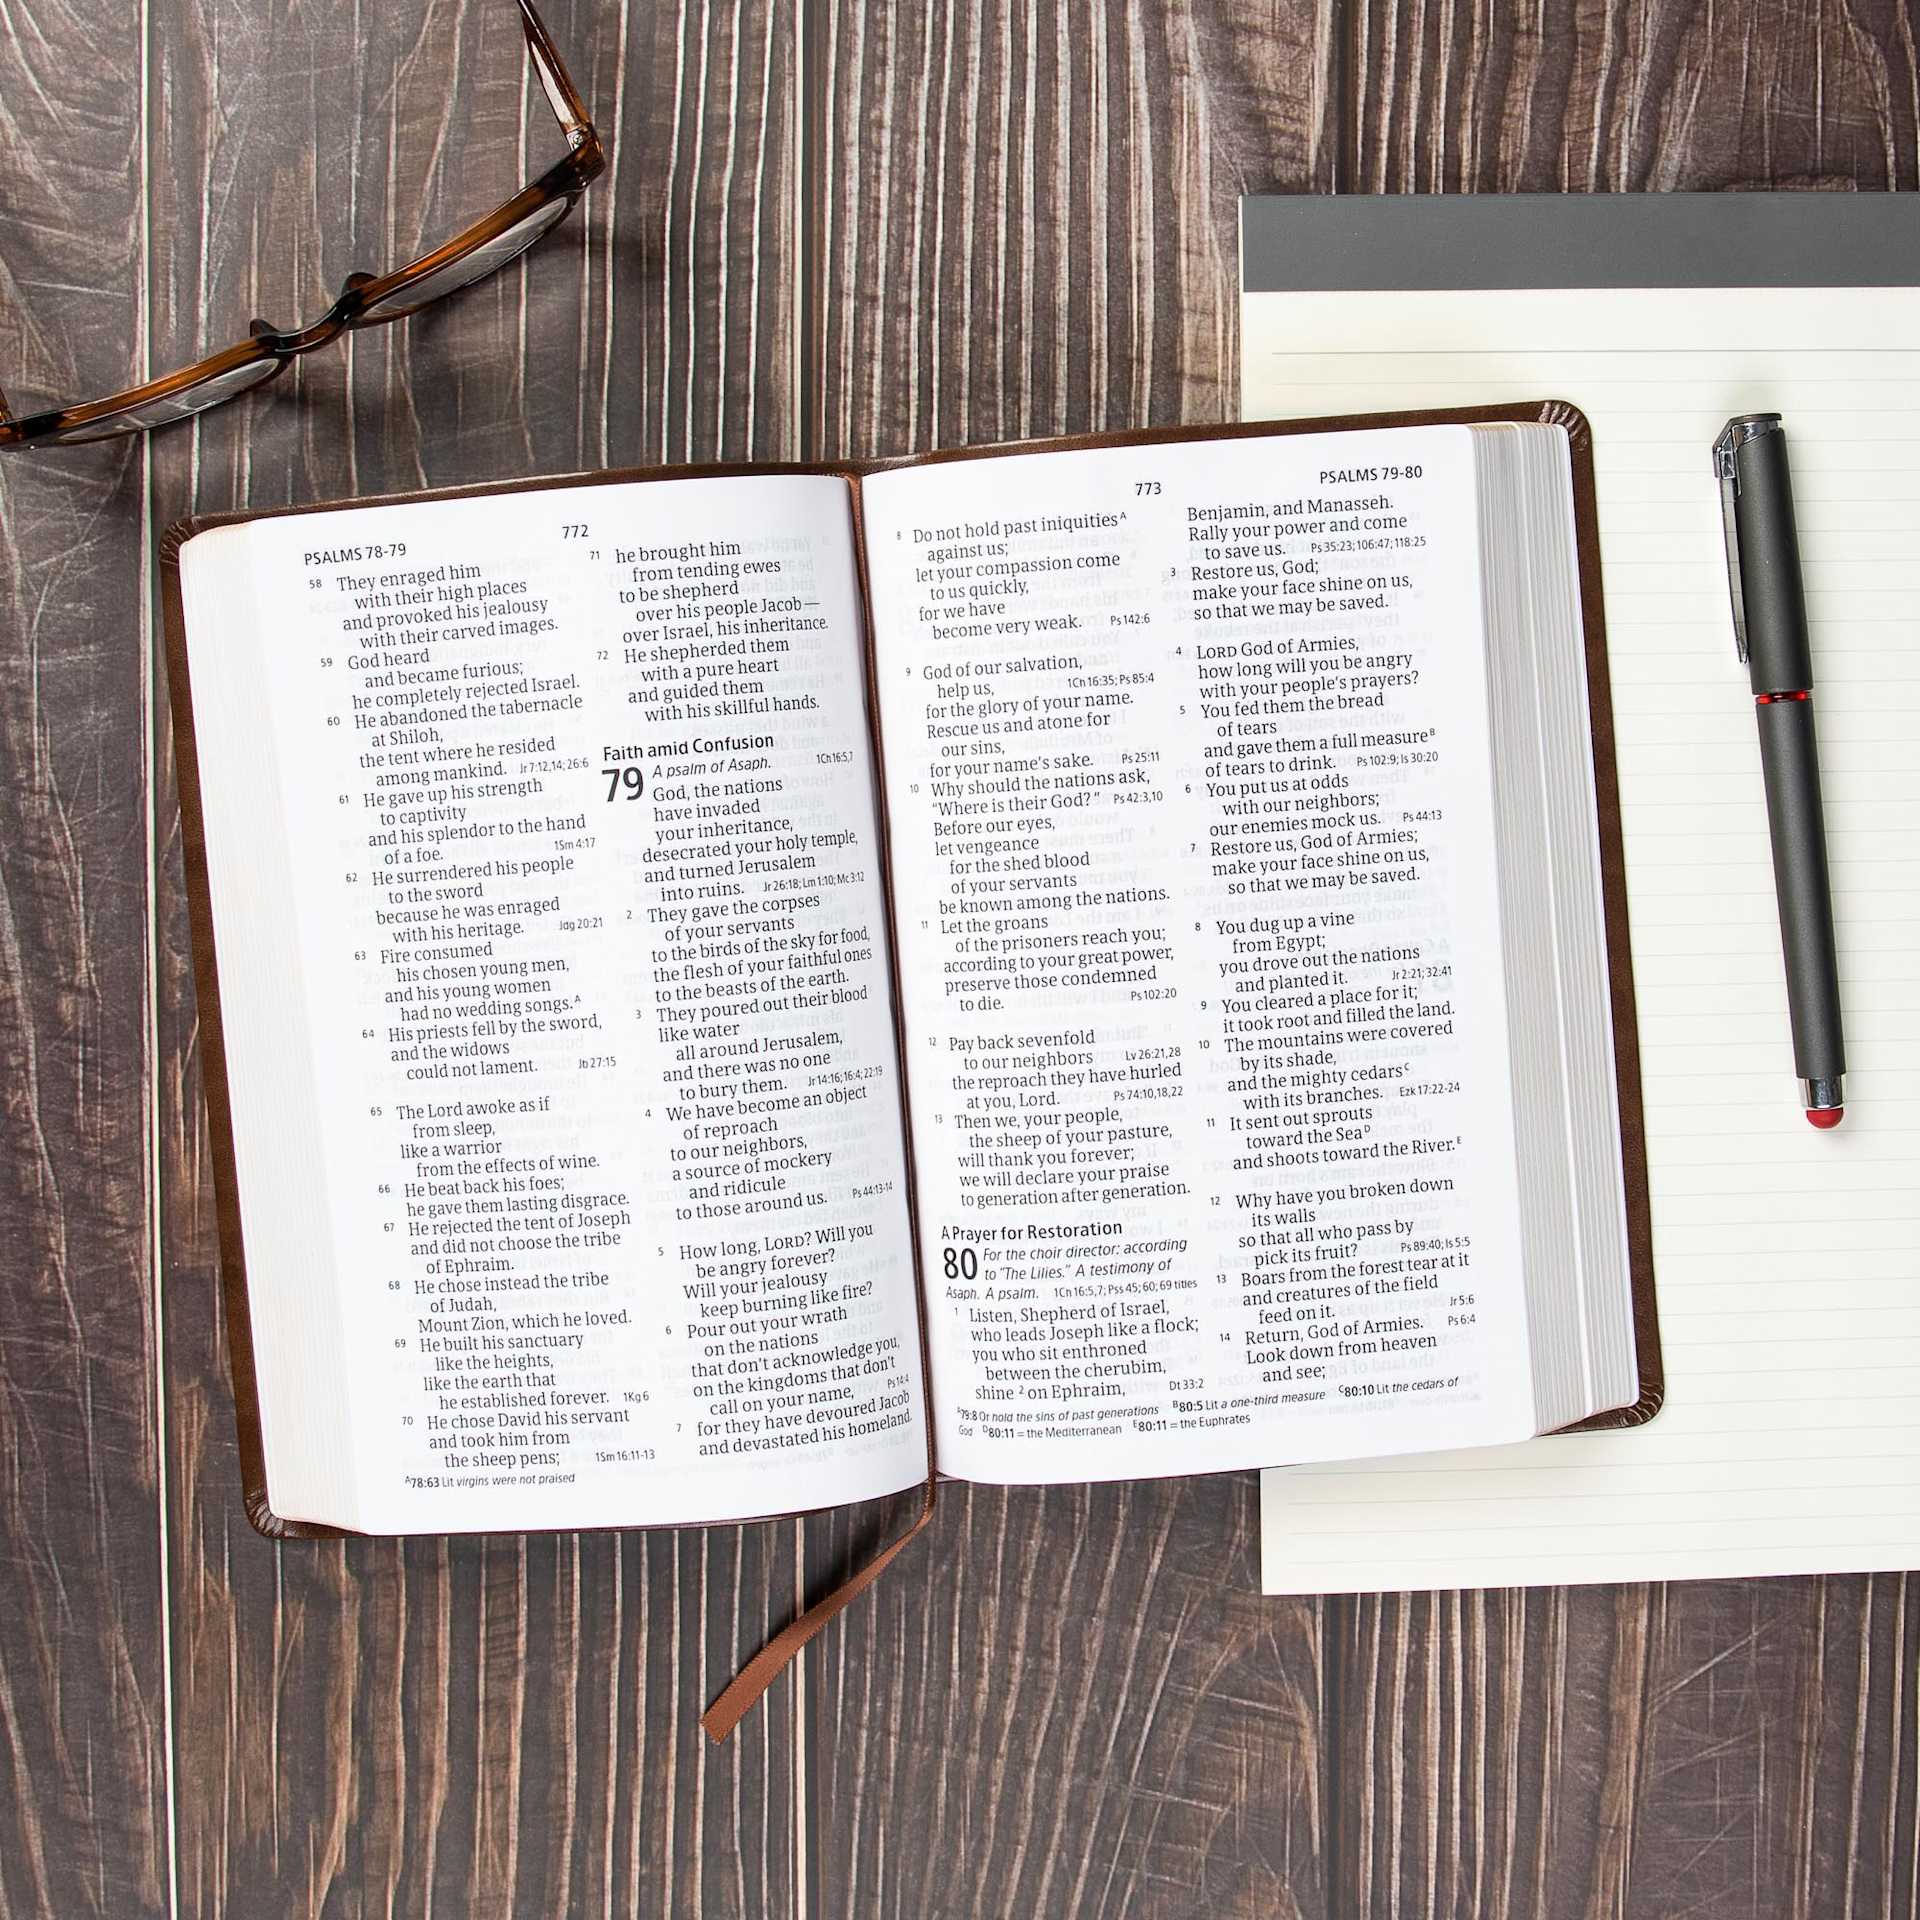 PSALMS 78-79
772
58 They enraged him
with their high places
and provoked his jealousy
with their carved images.
59 God heard
and became furious;
he completely rejected Israel.
60 He abandoned the tabernacle
at Shiloh,
the tent where he resided
among mankind. Jr 7:12,14; 26:6
61 He gave up his strength
to captivity
and his splendor to the hand
of a foe. 1Sm 4:17
62 He surrendered his people
to the sword
because he was enraged
with his heritage. Jdg 20:21
63 Fire consumed
his chosen young men,
and his young women
had no wedding songs.A
64 His priests fell by the sword,
and the widows
could not lament. Jb 27:15
65 The Lord awoke as if
from sleep,
like a warrior
from the effects of wine.
66 He beat back his foes;
he gave them lasting disgrace.
67 He rejected the tent of Joseph
and did not choose the tribe
of Ephraim.
68 He chose instead the tribe
of Judah,
Mount Zion, which he loved.
69 He built his sanctuary
like the heights,
like the earth that
he established forever. 1Kg 6
70 He chose David his servant
and took him from
the sheep pens; 1Sm 16:11-13
A78:63 Lit virgins were not praised
71 he brought him
from tending ewes
to be shepherd
over his people Jacob —
over Israel, his inheritance.
72 He shepherded them
with a pure heart
and guided them
with his skillful hands.
Faith amid Confusion
79 A psalm of Asaph. 1Ch 16:5,7
God, the nations
have invaded
your inheritance,
desecrated your holy temple,
and turned Jerusalem
into ruins. Jr 26:18; Lm 1:10; Mc 3:12
2 They gave the corpses
of your servants
to the birds of the sky for food,
the flesh of your faithful ones
to the beasts of the earth.
3 They poured out their blood
like water
all around Jerusalem,
and there was no one
to bury them. Jr 14:16; 16:4; 22:19
4 We have become an object
of reproach
to our neighbors,
a source of mockery
and ridicule
to those around us. Ps 44:13-14
5 How long, LORD? Will you
be angry forever?
Will your jealousy
keep burning like fire?
6 Pour out your wrath
on the nations
that don't acknowledge you,
on the kingdoms that don't
call on your name, Ps 14:4
7 for they have devoured Jacob
and devastated his homeland.
773
PSALMS 79-80
8 Do not hold past iniquitiesA
against us;
let your compassion come
to us quickly,
for we have
become very weak. Ps 142:6
9 God of our salvation,
help us, 1Ch 16:35; Ps 85:4
for the glory of your name.
Rescue us and atone for
our sins,
for your name's sake. Ps 25:11
10 Why should the nations ask,
"Where is their God?" Ps 42:3,10
Before our eyes,
let vengeance
for the shed blood
of your servants
be known among the nations.
11 Let the groans
of the prisoners reach you;
according to your great power,
preserve those condemned
to die. Ps 102:20
12 Pay back sevenfold
to our neighbors Lv 26:21,28
the reproach they have hurled
at you, Lord. Ps 74:10,18,22
13 Then we, your people,
the sheep of your pasture,
will thank you forever;
we will declare your praise
to generation after generation.
A Prayer for Restoration
80 For the choir director: according
to "The Lilies." A testimony of
Asaph. A psalm. 1Ch 16:5,7; Pss 45; 60; 69 titles
1 Listen, Shepherd of Israel,
who leads Joseph like a flock;
you who sit enthroned
between the cherubim,
shine 2 on Ephraim, Dt 33:2
Benjamin, and Manasseh.
Rally your power and come
to save us. Ps 35:23; 106:47; 118:25
3 Restore us, God;
make your face shine on us,
so that we may be saved.
4 LORD God of Armies,
how long will you be angry
with your people's prayers?
5 You fed them the bread
of tears
and gave them a full measureB
of tears to drink. Ps 102:9; Is 30:20
6 You put us at odds
with our neighbors;
our enemies mock us. Ps 44:13
7 Restore us, God of Armies;
make your face shine on us,
so that we may be saved.
8 You dug up a vine
from Egypt;
you drove out the nations
and planted it. Jr 2:21; 32:41
9 You cleared a place for it;
it took root and filled the land.
10 The mountains were covered
by its shade,
and the mighty cedarsC
with its branches. Ezk 17:22-24
11 It sent out sprouts
toward the SeaD
and shoots toward the River.E
12 Why have you broken down
its walls
so that all who pass by
pick its fruit? Ps 89:40; Is 5:5
13 Boars from the forest tear at it
and creatures of the field
feed on it. Jr 5:6
14 Return, God of Armies. Ps 6:4
Look down from heaven
and see;
A79:8 Or hold the sins of past generations B80:5 Lit a one-third measure C80:10 Lit the cedars of
God D80:11 = the Mediterranean E80:11 = the Euphrates